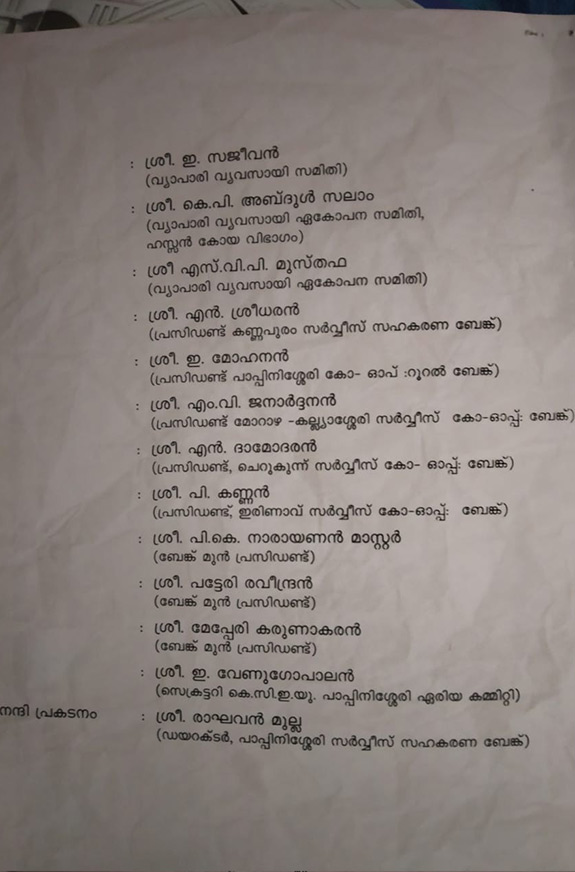 : ശ്രീ. ഇ. സജീവൻ
(വ്യാപാരി വ്യവസായി സമിതി)
: ശ്രീ. കെ.പി. അബ്ദുൾ സലാം
(വ്യാപാരി വ്യവസായി ഏകോപന സമിതി,
ഹസ്സൻ കോയ വിഭാഗം)
: ശ്രീ എസ്.വി.പി. മുസ്തഫ
(വ്യാപാരി വ്യവസായി ഏകോപന സമിതി)
: ശ്രീ. എൻ. ശ്രീധരൻ
(പ്രസിഡണ്ട് കണ്ണപുരം സർവ്വീസ് സഹകരണ ബേങ്ക്)
: ശ്രീ. ഇ. മോഹനൻ
(പ്രസിഡണ്ട് പാപ്പിനിശ്ശേരി കോ- ഓപ് :റൂറൽ ബേങ്ക്)
: ശ്രീ. എം.വി. ജനാർദ്ദനൻ
(പ്രസിഡണ്ട് മോറാഴ -കല്ല്യാശ്ശേരി സർവ്വീസ് കോ-ഓപ്പ്: ബേങ്ക്)
: ശ്രീ. എൻ. ദാമോദരൻ
(പ്രസിഡണ്ട്, ചെറുകുന്ന് സർവ്വീസ് കോ- ഓപ്പ്: ബേങ്ക്)
: ശ്രീ. പി. കണ്ണൻ
(പ്രസിഡണ്ട്, ഇരിണാവ് സർവ്വീസ് കോ-ഓപ്പ്: ബേങ്ക്)
: ശ്രീ. പി.കെ. നാരായണൻ മാസ്റ്റർ
(ബേങ്ക് മുൻ പ്രസിഡണ്ട്)
: ശ്രീ. പട്ടേരി രവീന്ദ്രൻ
(ബേങ്ക് മുൻ പ്രസിഡണ്ട്)
: ശ്രീ. മേപ്പേരി കരുണാകരൻ
(ബേങ്ക് മുൻ പ്രസിഡണ്ട്)
: ശ്രീ. ഇ. വേണുഗോപാലൻ
(സെക്രട്ടറി കെ.സി.ഇ.യു. പാപ്പിനിശ്ശേരി ഏരിയ കമ്മിറ്റി)
നന്ദി പ്രകടനം : ശ്രീ. രാഘവൻ മുല്ല
(ഡയറക്ടർ, പാപ്പിനിശ്ശേരി സർവ്വീസ് സഹകരണ ബേങ്ക്)